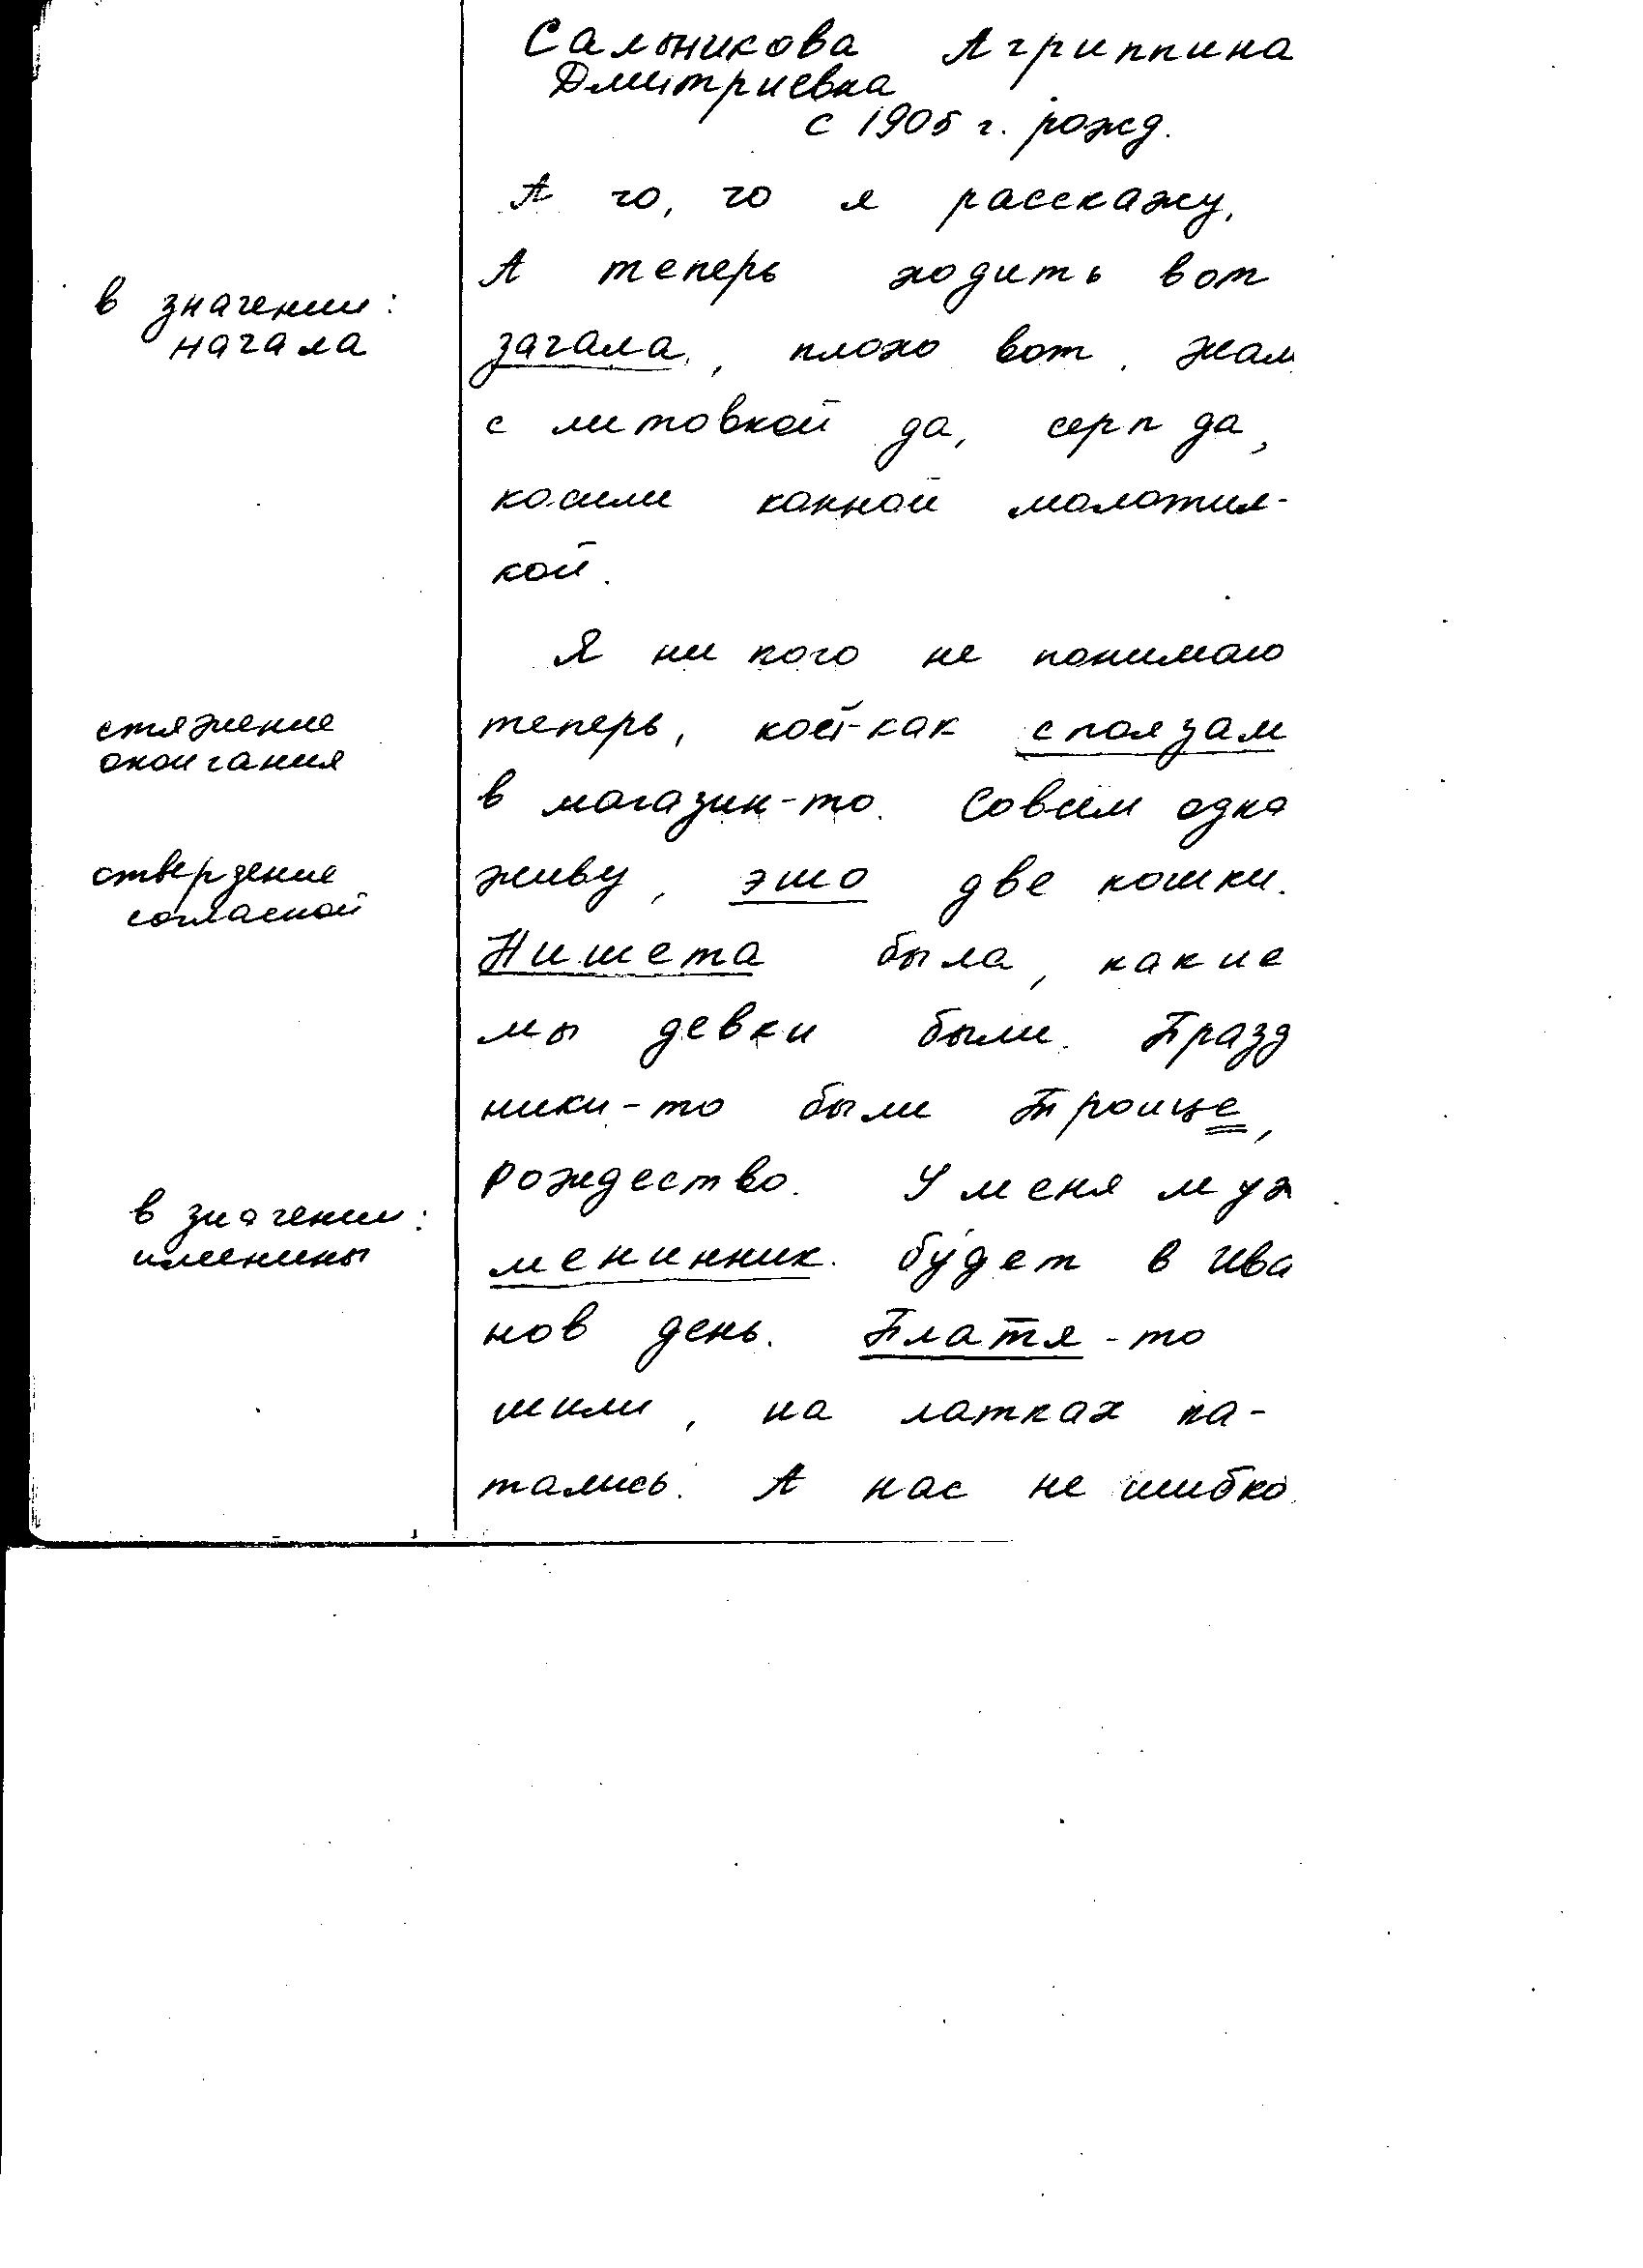 Сальникова Агриппина
Дмитриевна
с 1905 г. рожд.
А чо, чо я расскажу,
А теперь ходить вот
в значении:
начала
зачала, плохо вот. Жали
с литовкой да, серп да,
косили конной молотил-
кой.
Я никого не понимаю
стяжение
окончания
теперь, кой-как споязам
в магазин-то. Совсем одна
отвердение
согласной
живу, эшо две кошки.
Нишета была, какие
мы девки были. Празд
ники-то были Троице,
Рождество. У меня муж
в значении:
именины
менинник будет в Ива
нов день. Платя-то
шили, на латках ка-
тались. А нас не шибко